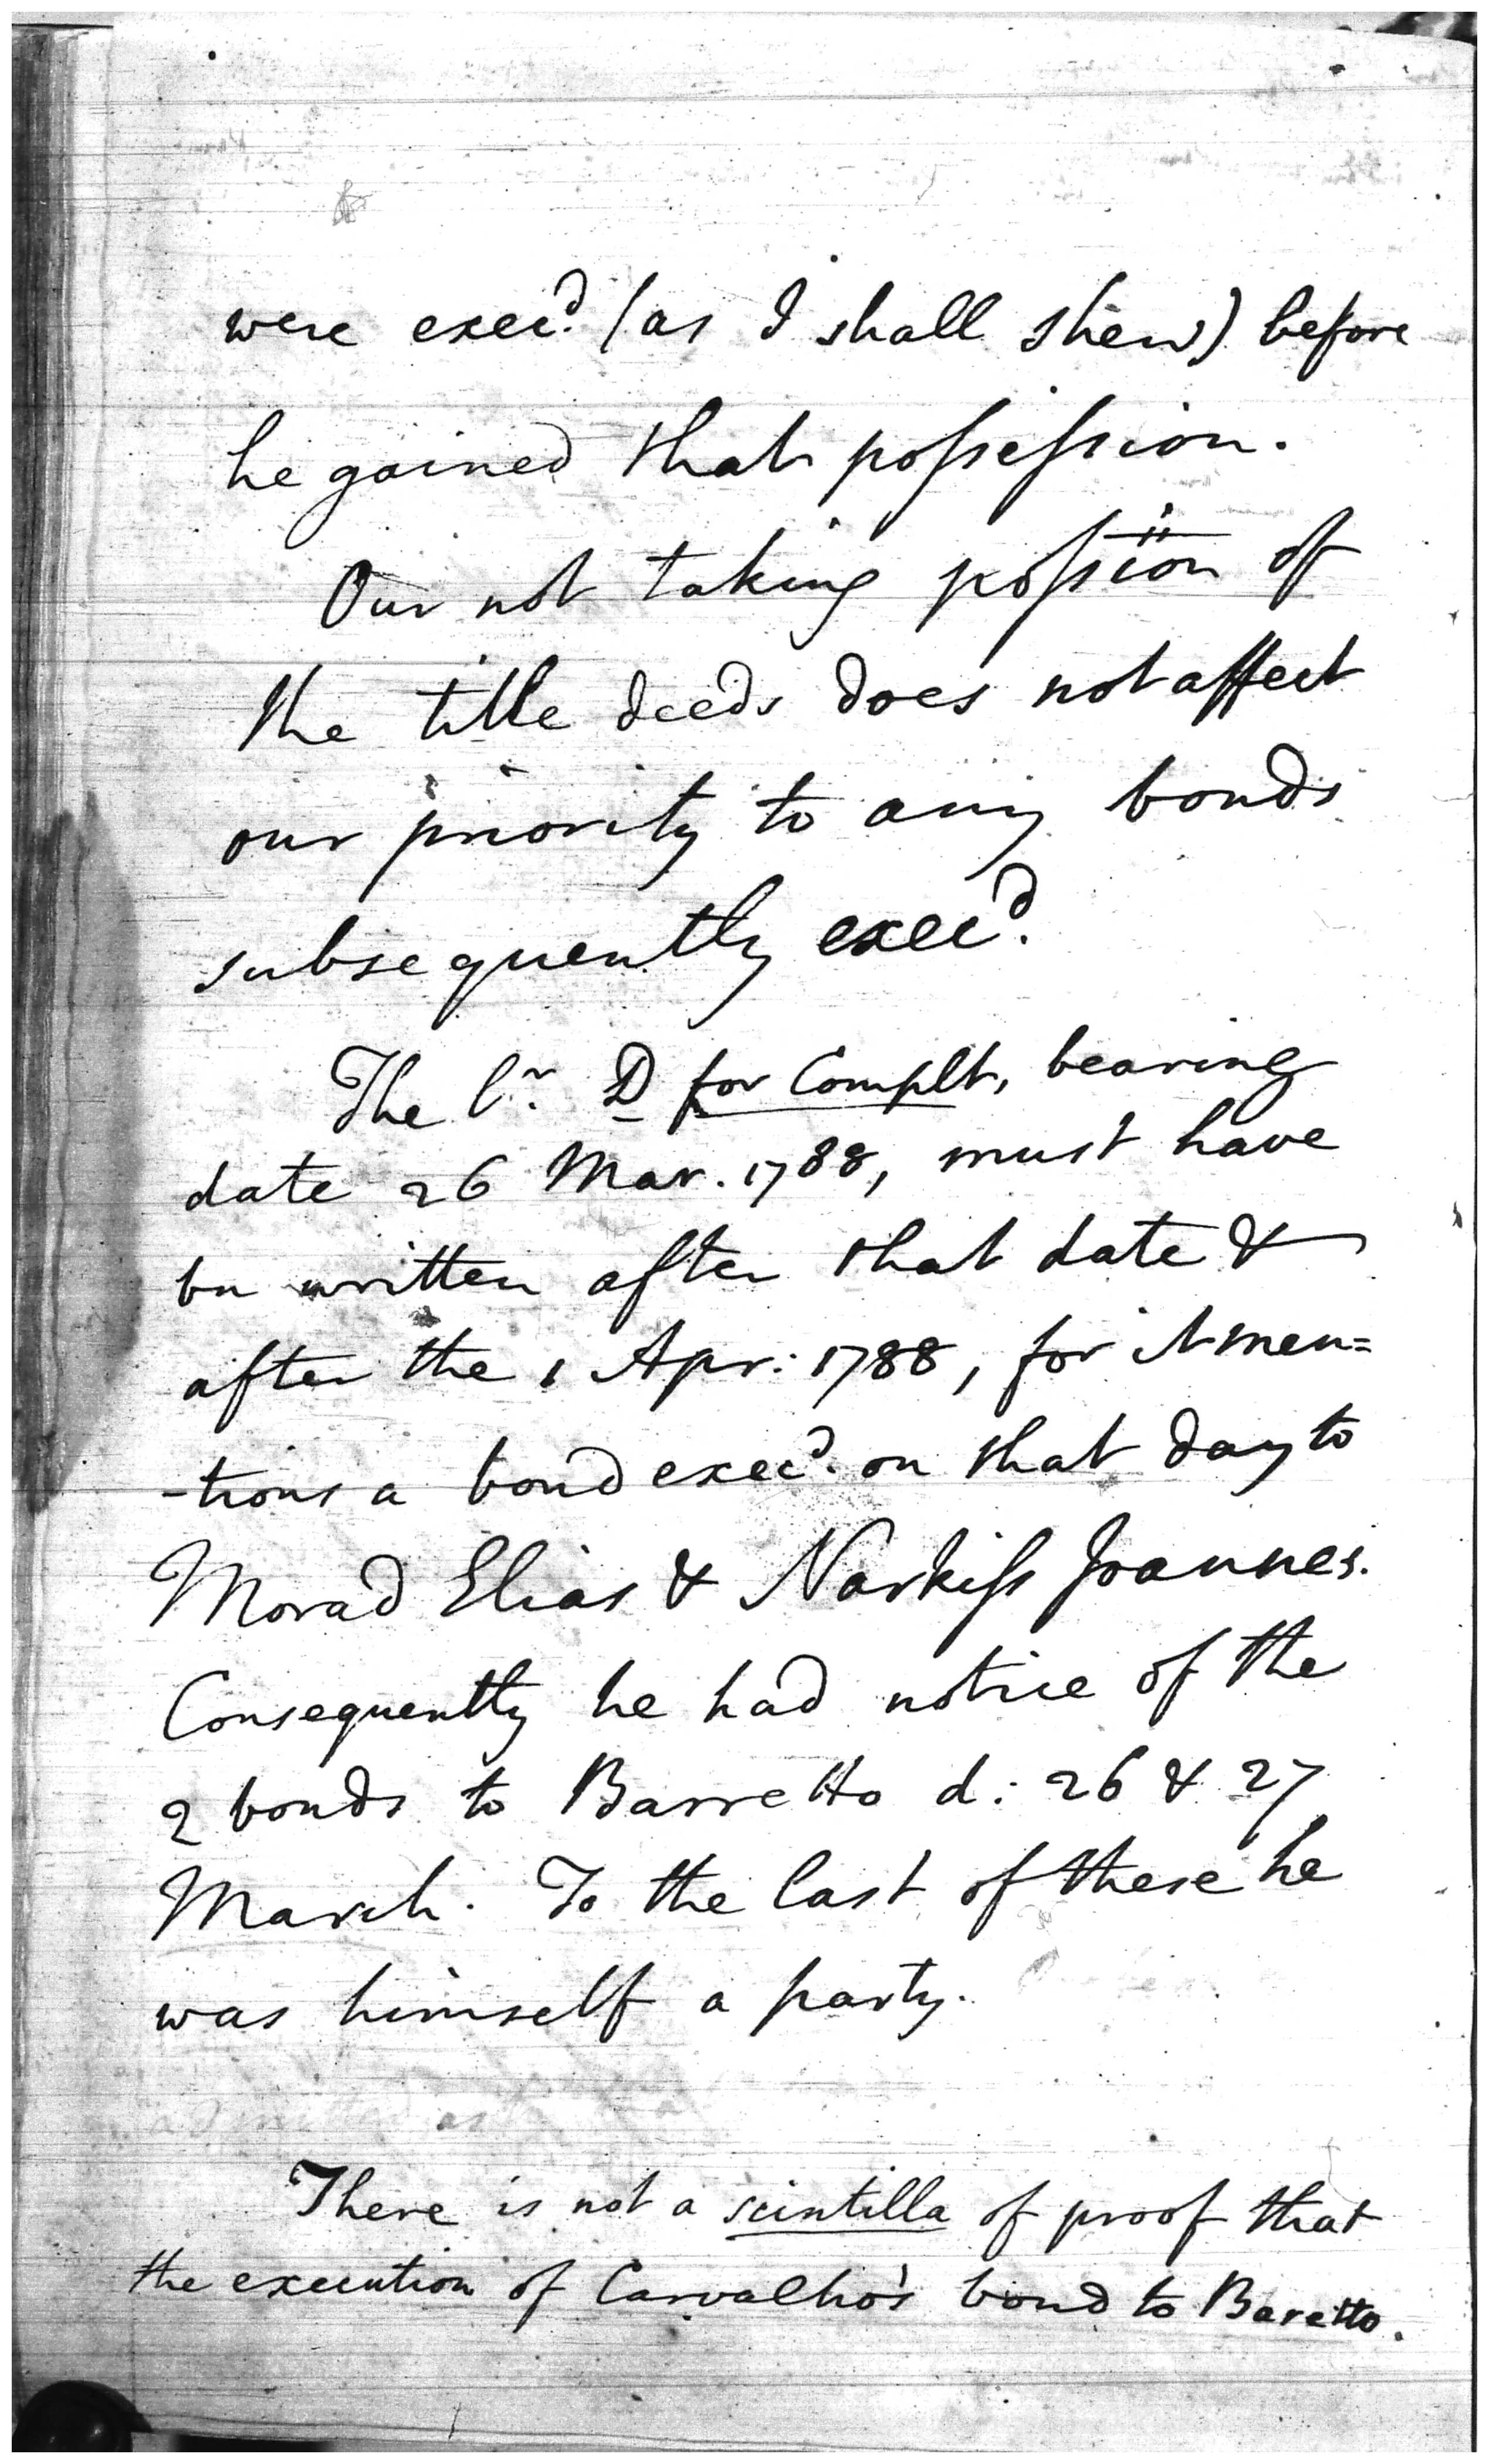 were exec.d (as I shall shew) before
he gained that possession.
Our not taking possion of
the title deeds does not affect
our priority to any bonds
subsequently exec.d
The l.r D for Complt, bearing
date 26 Mar. 1788, must have
be written after that date &
after the 1 Apr: 1788, for it men=
-tions a bond exec.d on that day to
Morad Elias & Narkiss Joannes.
Consequently he had notice of the
2 bonds to Barretto d: 26 & 27
March. To the last of these he
was himself a party.
There is not a scintilla of proof that
the execution of Carvalho's bond to Baretto.